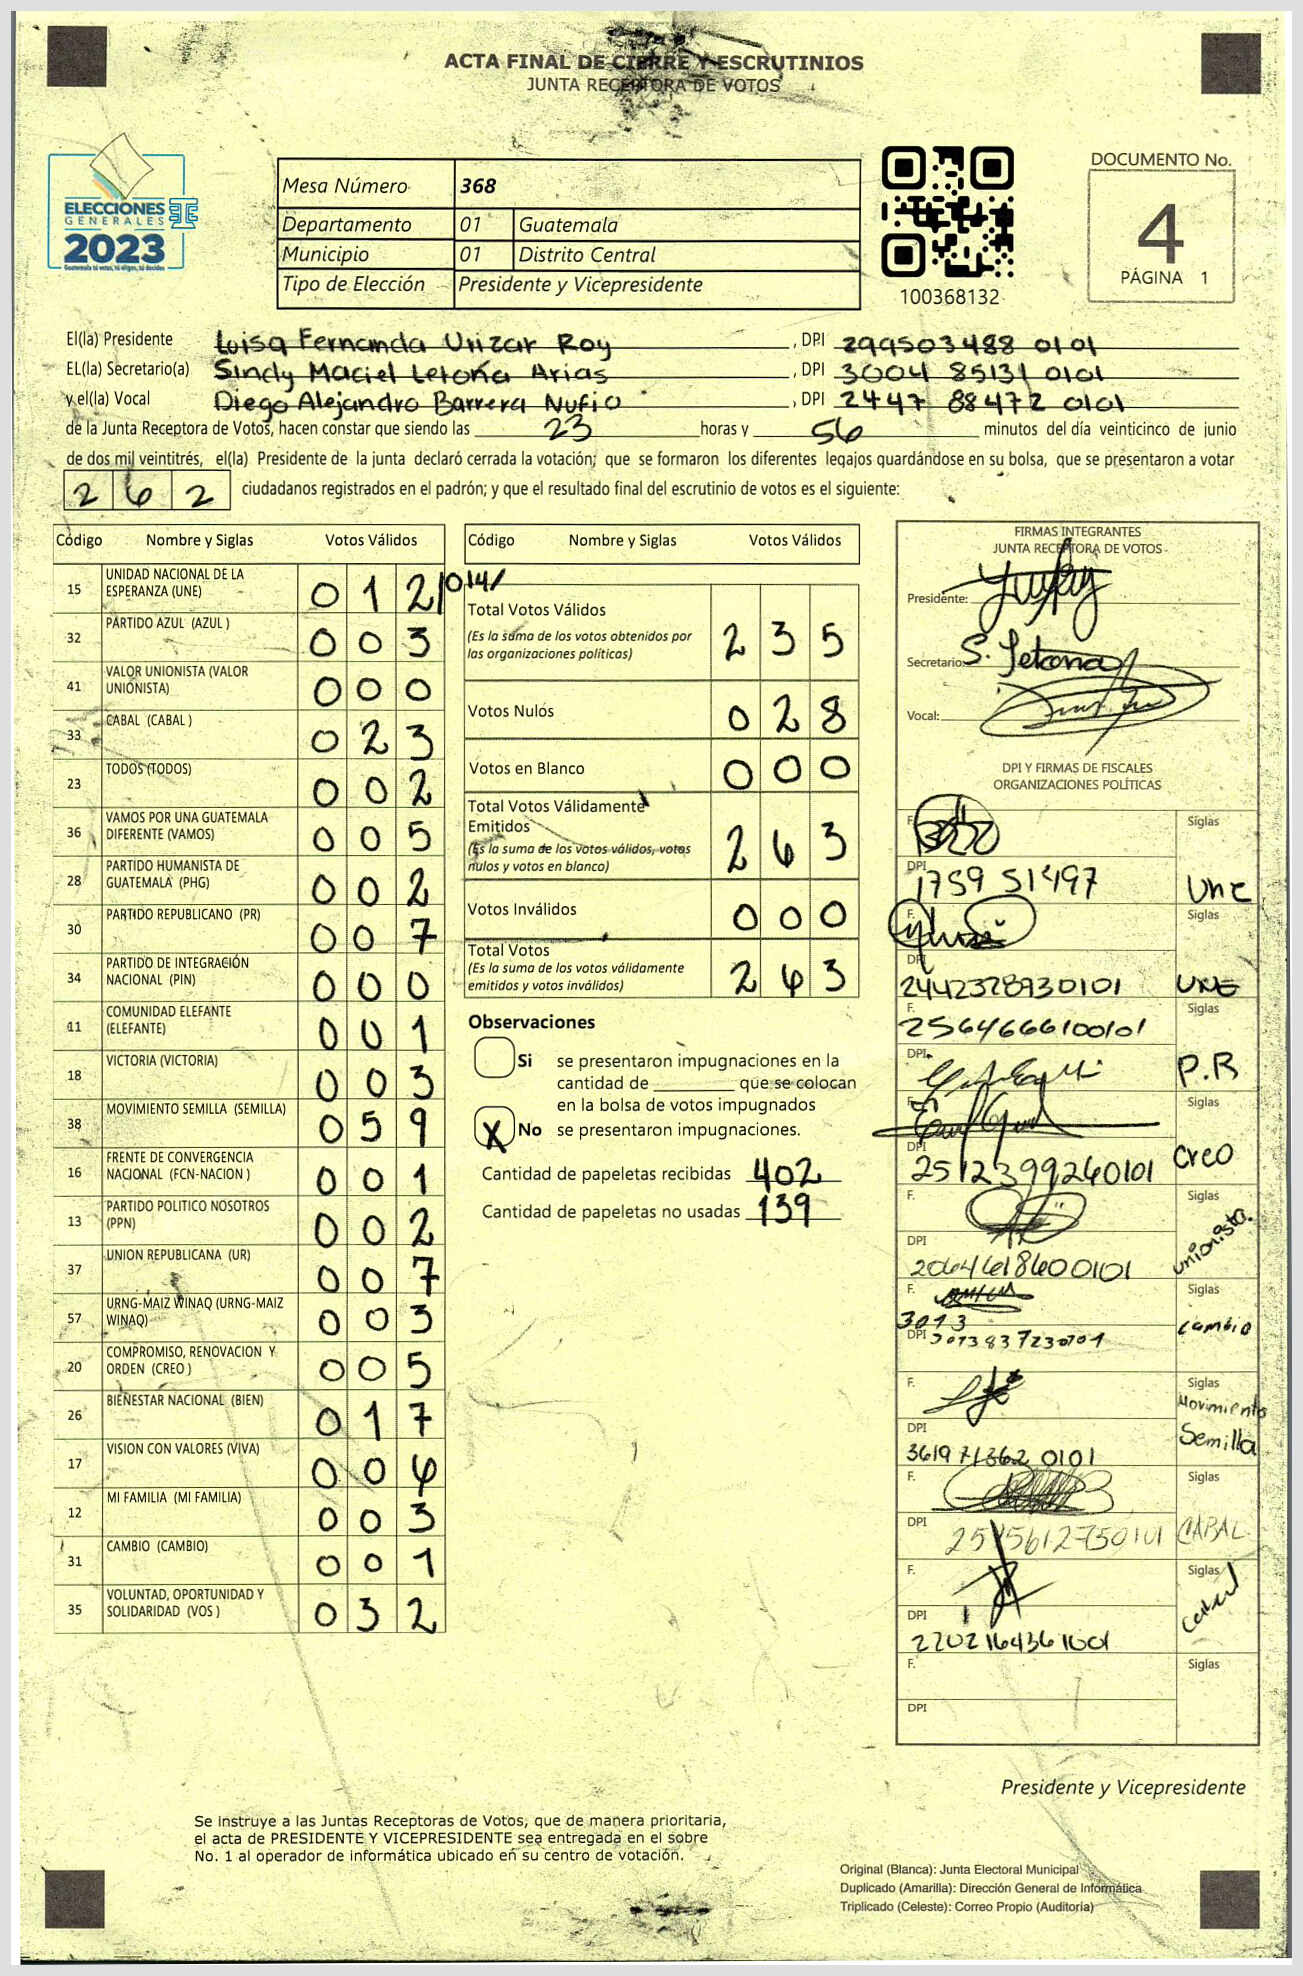 ACTA FINAL DE CIERRE Y ESCRUTINIOS
JUNTA RECEPTORA DE VOTOS
ELECCIONES
GENERALES
2023
Guatemala tú votas, tú eliges, tú decides
Mesa Número 368
Departamento 01 Guatemala
Municipio 01 Distrito Central
Tipo de Elección Presidente y Vicepresidente
100368132
DOCUMENTO No.
4
PÁGINA 1
El(la) Presidente Luisa Fernanda Urizar Roy, DPI 299503488 0101
EL(la) Secretario(a) Sindy Maciel Letona Arias, DPI 3004 85131 0101
y el(la) Vocal Diego Alejandro Barrera Nufio, DPI 2447 88472 0101
de la Junta Receptora de Votos, hacen constar que siendo las 23 horas y 56 minutos del día veinticinco de junio
de dos mil veintitrés, el(la) Presidente de la junta declaró cerrada la votación; que se formaron los diferentes legajos quardándose en su bolsa, que se presentaron a votar
262 ciudadanos registrados en el padrón; y que el resultado final del escrutinio de votos es el siguiente:
Código Nombre y Siglas Votos Válidos
15 UNIDAD NACIONAL DE LA ESPERANZA (UNE) 012/014/
32 PARTIDO AZUL (AZUL ) 003
41 VALOR UNIONISTA (VALOR UNIONISTA) 000
33 CABAL (CABAL ) 023
23 TODOS (TODOS) 002
36 VAMOS POR UNA GUATEMALA DIFERENTE (VAMOS) 005
28 PARTIDO HUMANISTA DE GUATEMALA (PHG) 002
30 PARTIDO REPUBLICANO (PR) 007
34 PARTIDO DE INTEGRACIÓN NACIONAL (PIN) 000
11 COMUNIDAD ELEFANTE (ELEFANTE) 001
18 VICTORIA (VICTORIA) 003
38 MOVIMIENTO SEMILLA (SEMILLA) 059
16 FRENTE DE CONVERGENCIA NACIONAL (FCN-NACION ) 001
13 PARTIDO POLITICO NOSOTROS (PPN) 002
37 UNION REPUBLICANA (UR) 007
57 URNG-MAIZ WINAQ (URNG-MAIZ WINAQ) 003
20 COMPROMISO, RENOVACION Y ORDEN (CREO ) 005
26 BIENESTAR NACIONAL (BIEN) 017
17 VISION CON VALORES (VIVA)
12 MI FAMILIA (MI FAMILIA) 003
31 CAMBIO (CAMBIO) 001
35 VOLUNTAD, OPORTUNIDAD Y SOLIDARIDAD (VOS ) 032
Código Nombre y Siglas Votos Válidos
Total Votos Válidos 235
(Es la suma de los votos obtenidos por
las organizaciones políticas)
Votos Nulos 028
Votos en Blanco 000
Total Votos Válidamente
Emitidos 263
(Es la suma de los votos válidos, votos
nulos y votos en blanco)
Votos Inválidos 000
Total Votos 263
(Es la suma de los votos válidamente
emitidos y votos inválidos)
Observaciones
Si se presentaron impugnaciones en la
cantidad de ________ que se colocan
en la bolsa de votos impugnados
X No se presentaron impugnaciones.
Cantidad de papeletas recibidas 402
Cantidad de papeletas no usadas 139
FIRMAS INTEGRANTES
JUNTA RECEPTORA DE VOTOS
Presidente:
Secretario: S. Letona
Vocal:
DPI Y FIRMAS DE FISCALES
ORGANIZACIONES POLÍTICAS
F. Siglas
DPI 1759 51497 Une
F. Siglas
DPI 2442378930101 UNE
F. Siglas
2564666100101
DPI P.R
F. Siglas
DPI 2512399260101 Creo
F. Siglas
DPI 2064618600101 Unionista.
F. Siglas
3013
DPI 3013837230101 Cambio
F. Siglas
DPI 3619713620101 Movimiento Semilla
F. Siglas
DPI 2545612750101 CABAL
F. Siglas
DPI 2202164361001 Cabal
F. Siglas
DPI
Presidente y Vicepresidente
Se instruye a las Juntas Receptoras de Votos, que de manera prioritaria,
el acta de PRESIDENTE Y VICEPRESIDENTE sea entregada en el sobre
No. 1 al operador de informática ubicado en su centro de votación.
Original (Blanca): Junta Electoral Municipal
Duplicado (Amarilla): Dirección General de Informática
Triplicado (Celeste): Correo Propio (Auditoria)